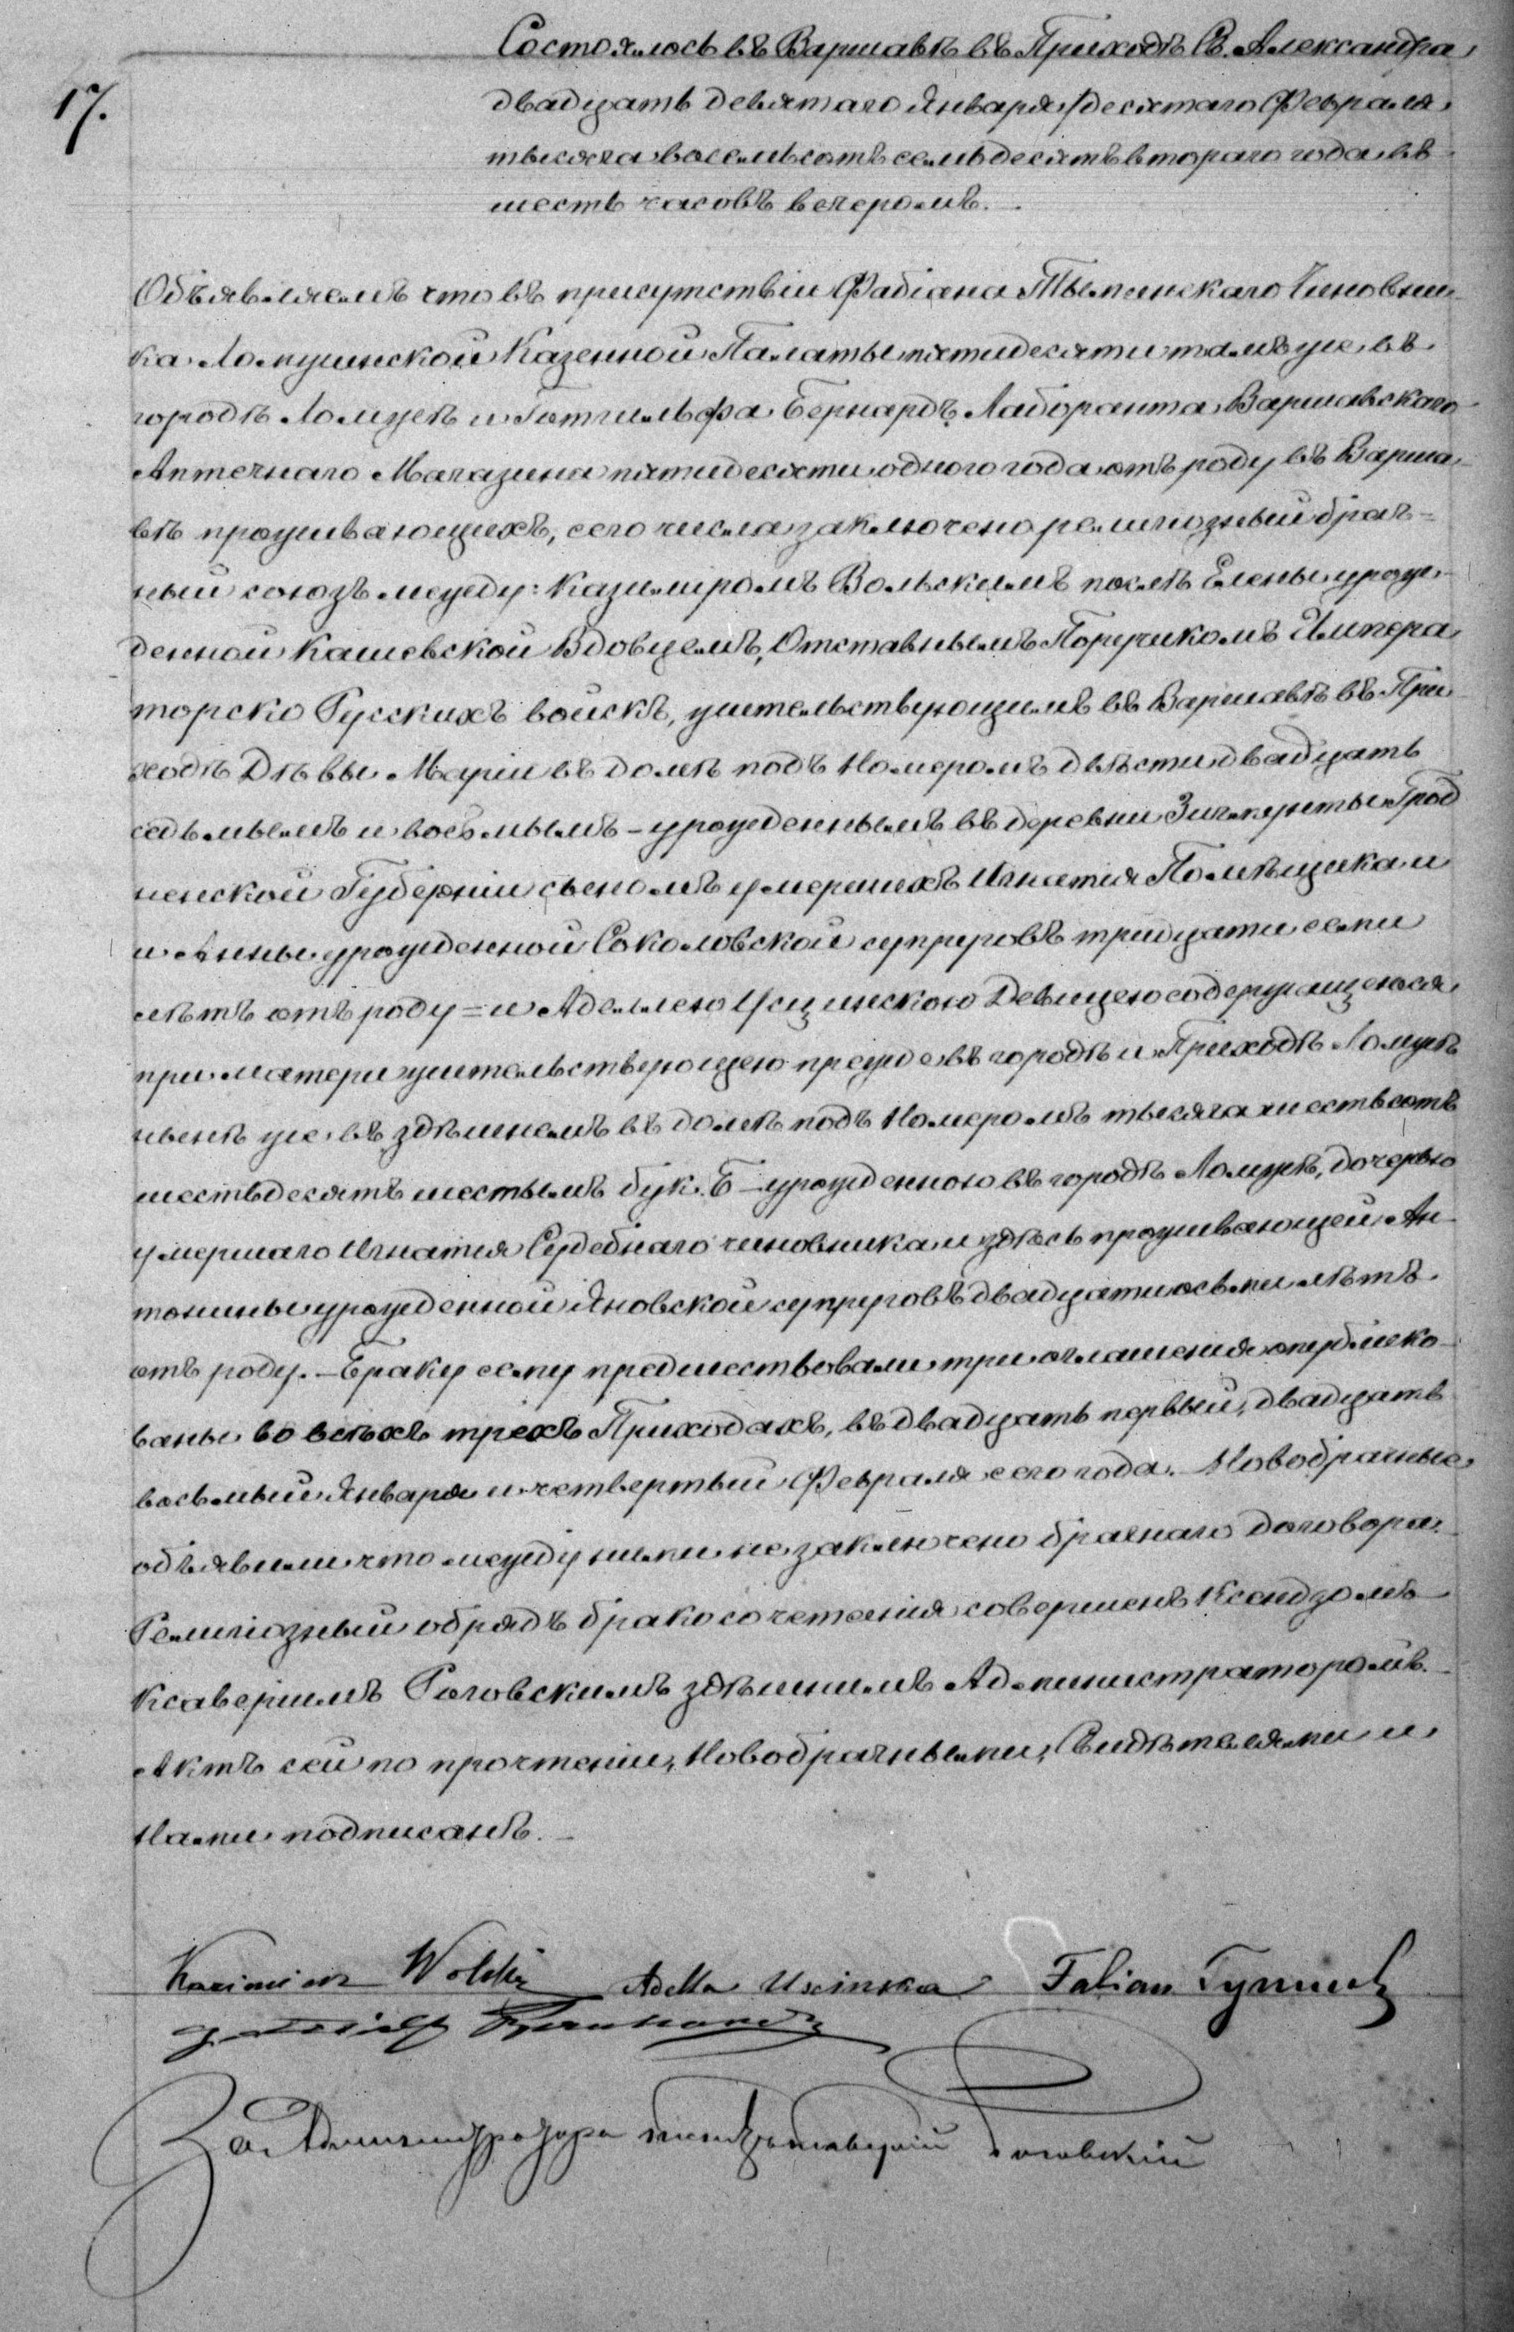 Состоялось въ Варшавѣ въ Приходѣ Св. Александра
17.
двадцать девятаго Января/десятаго Февраля
тысяча восемьсотъ семьдесятъ втораго года въ
шесть часовъ вечеромъ.
Объявляемъ что въ присутствіи Фабіана Тыминскаго Чиновни-
ка Ломжинской Казенной Палаты пятидесяти тамъ же въ
городѣ Ломжѣ и Готгильфа Бернардъ Лаборанта Варшавскаго
Аптечнаго Магазина пятидесяти одного года отъ роду въ Варша-
вѣ проживающихъ, сего числа заключено религіозный брач=
ный союзъ между: Казимиромъ Вольскимъ послѣ Елены урож-
денной Кашевской Вдовцемъ, Отставнымъ Поручикомъ Импера
торско Русскихъ войскъ, жительствующимъ въ Варшавѣ въ При
ходѣ Дѣвы Маріи въ домѣ подъ Номеромъ двѣсти двадцать
седьмымъ и восьмымъ – урожденнымъ въ деревни Грод
ненской Губерніи сыномъ умершихъ Игнатія Помѣщика и
и Анны урожденной Соколовской супруговъ тридцати семи
лѣтъ отъ роду = и Аделлею Усцинскою Девицею содержащеюся
при матери жительствующею прежде въ городѣ и Приходѣ Ломжѣ
нынѣ же въ здѣшнемъ въ домѣ подъ Номеромъ тысяча шестьсотъ
шестьдесятъ шестымъ бук. Б – урожденною въ городѣ Ломжѣ, дочерью
умершаго Игнатія Судебнаго чиновника и здѣсь проживающей Ан-
тонины урожденной Яновской супруговъ двадцати осьми лѣтъ
отъ роду. – Браку сему предшествовали три оглашенія опублико-
ваны во всѣхъ трехъ Приходахъ, въ двадцать первый, двадцать
восьмый Января и четвертый Февраля сего года. Новобрачные
объявили что между ними не заключено брачнаго договора.
Религіозный обрядъ бракосочетанія совершенъ Ксендзомъ
Ксаверимъ Роговскимъ здѣшнимъ Администраторомъ.
Актъ сей по прочтеніи, Новобрачными, Свидѣтелями и
Нами подписанъ. –
Kazimierz Wolski Adella Uscinska Fabian Tyminski
Bernhard
За Администратора Роговскій